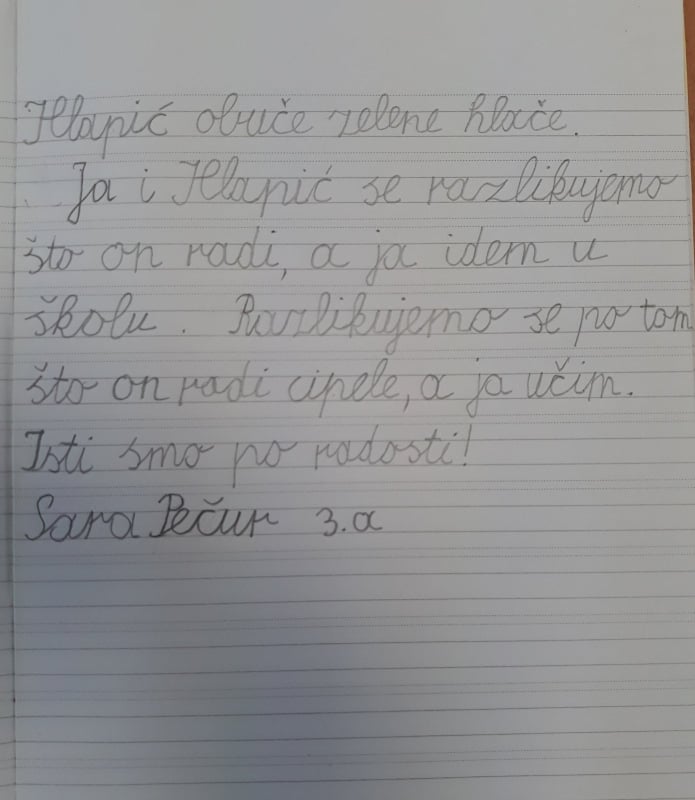 Hlapić obuče zelene hlače.
Ja i Hlapić se razlikujemo
što on radi, a ja idem u
školu. Razlikujemo se po tom
što on radi cipele, a ja učim.
Isti smo po radosti!
Sara Pečur 3.a